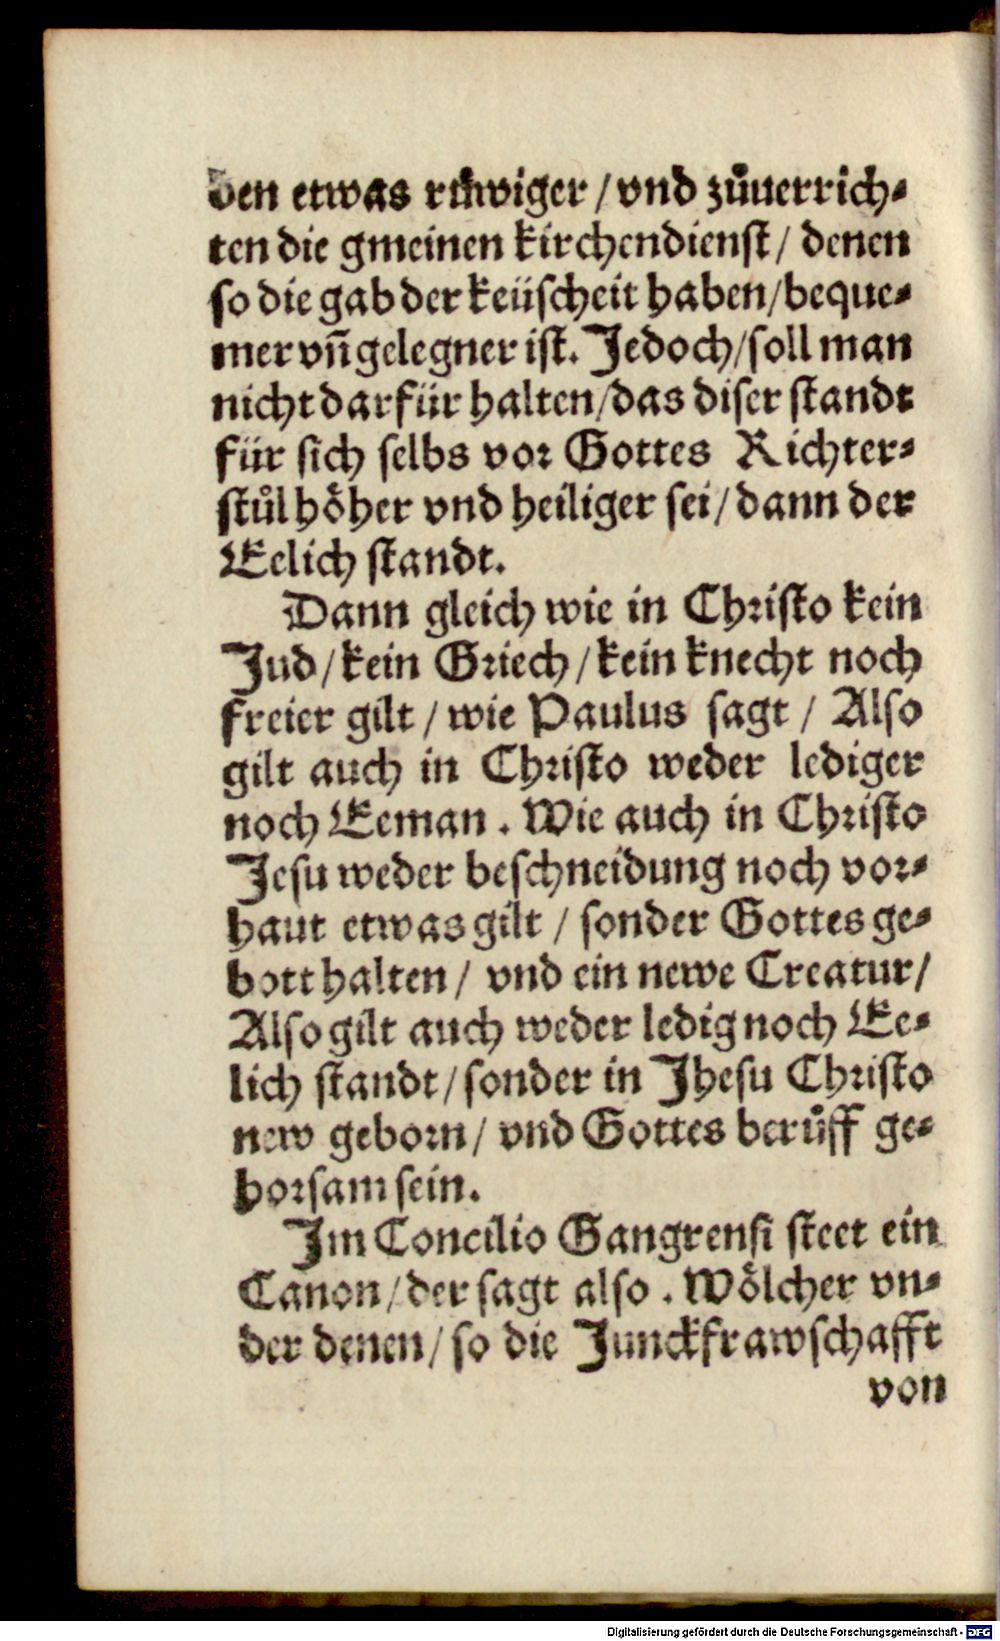 den etwas rüwiger / vnd zuͦuerrich-
ten die gmeinen kirchendienst / denen
so die gab der keüscheit haben / beque-
mer vñ gelegner ist. Jedoch / soll man
nicht darfür halten / das diser standt
für sich selbs vor Gottes Richter-
stuͦl höher vnd heiliger sei / dann der
Eelich standt.
Dann gleich wie in Christo kein
Jud / kein Griech / kein knecht noch
freier gilt / wie Paulus sagt / Also
gilt auch in Christo weder lediger
noch Eeman . Wie auch in Christo
Jesu weder beschneidung noch vor-
haut etwas gilt / sonder Gottes ge-
bott halten / vnd ein newe Creatur /
Also gilt auch weder ledig noch Ee-
lich standt / sonder in Jhesu Christo
new geborn / vnd Gottes beruͦff ge-
horsam sein.
Im Concilio Gangrensi steet ein
Canon / der sagt also . Wölcher vn-
der denen / so die Junckfrawschafft
von
Digitalisierung gefördert durch die Deutsche Forschungsgemeinschaft - DFG